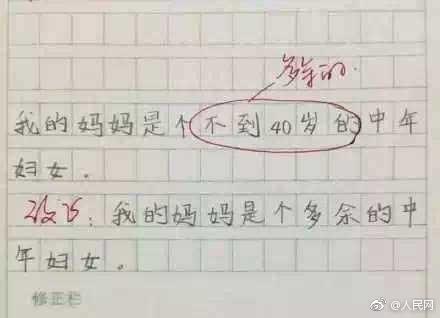 多余的.
我的妈妈是个不到40岁的中年
妇女.
改正:我的妈妈是个多余的中
年妇女。
修正栏
@人民网